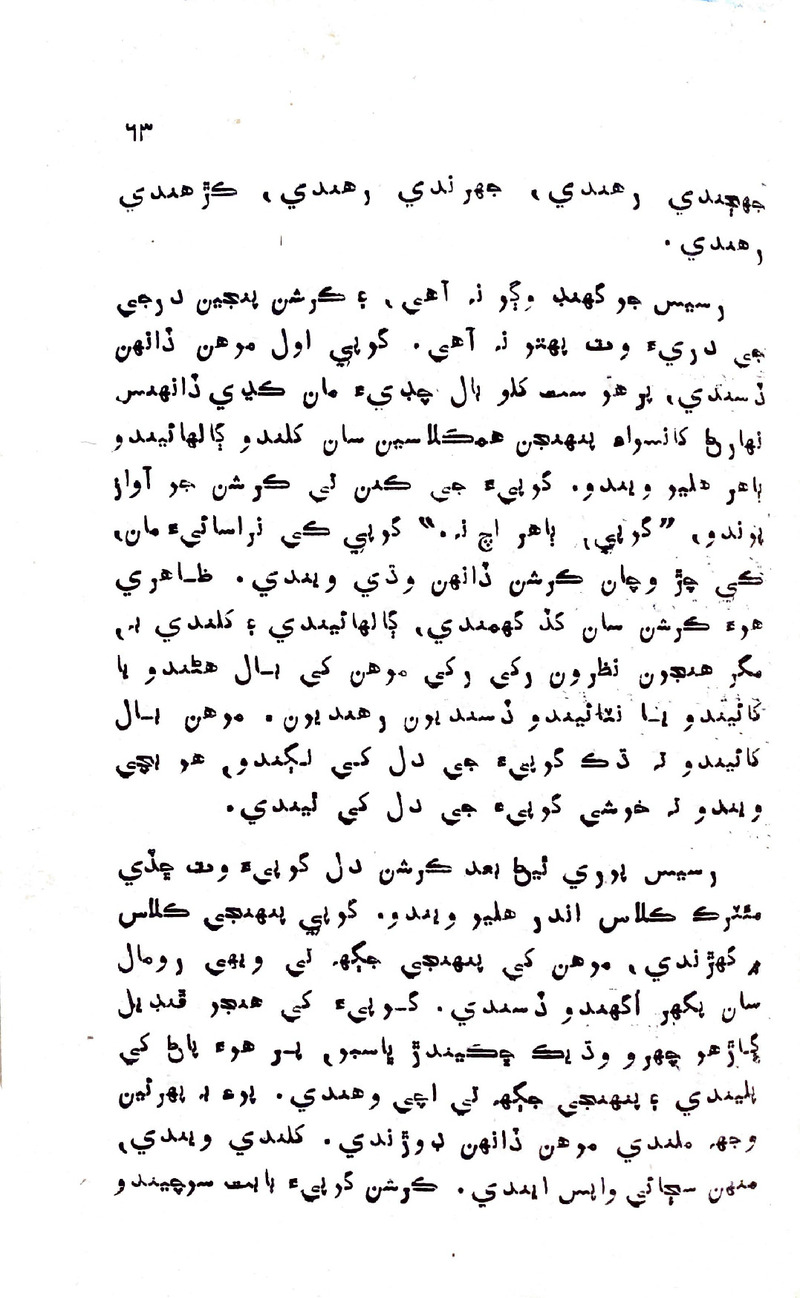 ٦٣
جھڄندي رهندي، جهرندي رهندي، ڪڙهندي
رهندي.
رسيس جو گهنڊ وڳو نہ آهي، ۽ ڪرشن پنجين درجي
جي دريءَ وٽ پهتو نہ آهي. گوپي اول موهن ڏانهن
ڏسندي، پر هو سٽ کلو بال چڊيءَ مان ڪڍي ڏانهنس
نهارڻ کانسواءِ پنهنجن همڪلاسين سان کلندو ڳالهائيندو
ٻاهر هليو ويندو. گوپيءَ جي ڪنن تي ڪرشن جو آواز
پوندو، ”گوپي، ٻاهر اچ نہ.“ گوپي کي نراسائيءَ مان،
ڪي چڙ وچان ڪرشن ڏانهن وڌي ويندي. ظاهري
هوءَ ڪرشن سان گڏ گهمندي، ڳالهائيندي ۽ کلندي بہ،
مگر هنجون نظرون رکي رکي موهن کي بال هڻندو يا
کائيندو يا نٽائيندو ڏسنديون رهنديون. موهن بال
کائيندو تہ ڌڪ گوپيءَ جي دل کي لڳندو، هو بچي
ويندو تہ خوشي گوپيءَ جي دل کي ٿيندي.
رسيس پوري ٿيڻ بعد ڪرشن دل گوپيءَ وٽ ڇڏي
مشترڪ ڪلاس اندر هليو ويندو. گوپي پنهنجي ڪلاس
۾ گهڙندي، موهن کي پنهنجي جڳھہ تي ويهي رومال
سان پگهر اگهندو ڏسندي. گوپيءَ کي هنجو
ڳاڙهو چهرو وڌيڪ ڇڪيندڙ ڀاسبو، پر هوءَ پاڻ کي
پليندي ۽ پنهنجي جڳھہ تي اچي وهندي. پوءِ بہ پهرئين
وجهہ ملندي موهن ڏانهن ڊوڙندي. کلندي ويندي،
منهن سڄائي واپس ايندي. ڪرشن گوپيءَ بابت سوچيندو